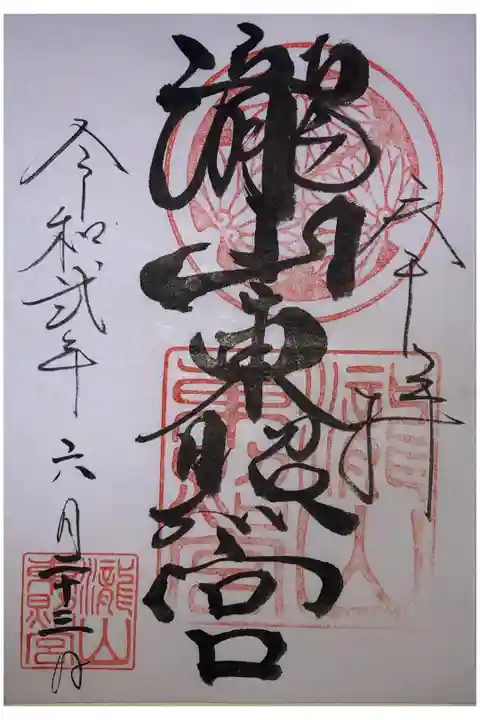 奉拝
瀧山東照宮
令和弐年六月二十三日
瀧山東照宮
瀧山東照宮